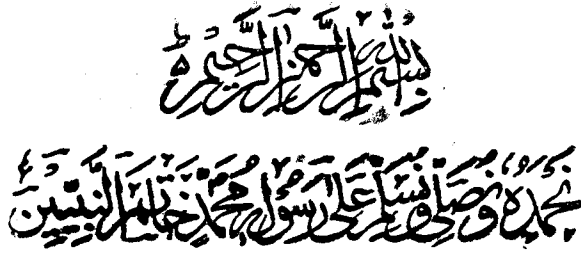 بِسْمِ اللّٰهِ الرَّحْمٰنِ الرَّحِيْمِ
نَحْمَدُهٗ وَنُصَلِّیْ وَنُسَلِّمُ عَلٰی رَسُوْلِهٖ مُحَمَّدٍ خَاتَمِ النَّبِيِّيْنَ